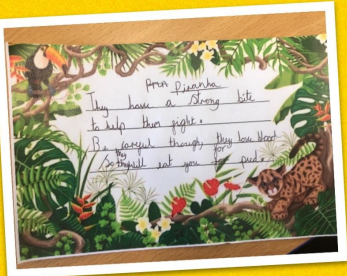 Piranha
They have a strong bite
to help them fight.
Be careful though, they love blood
So they will eat you for